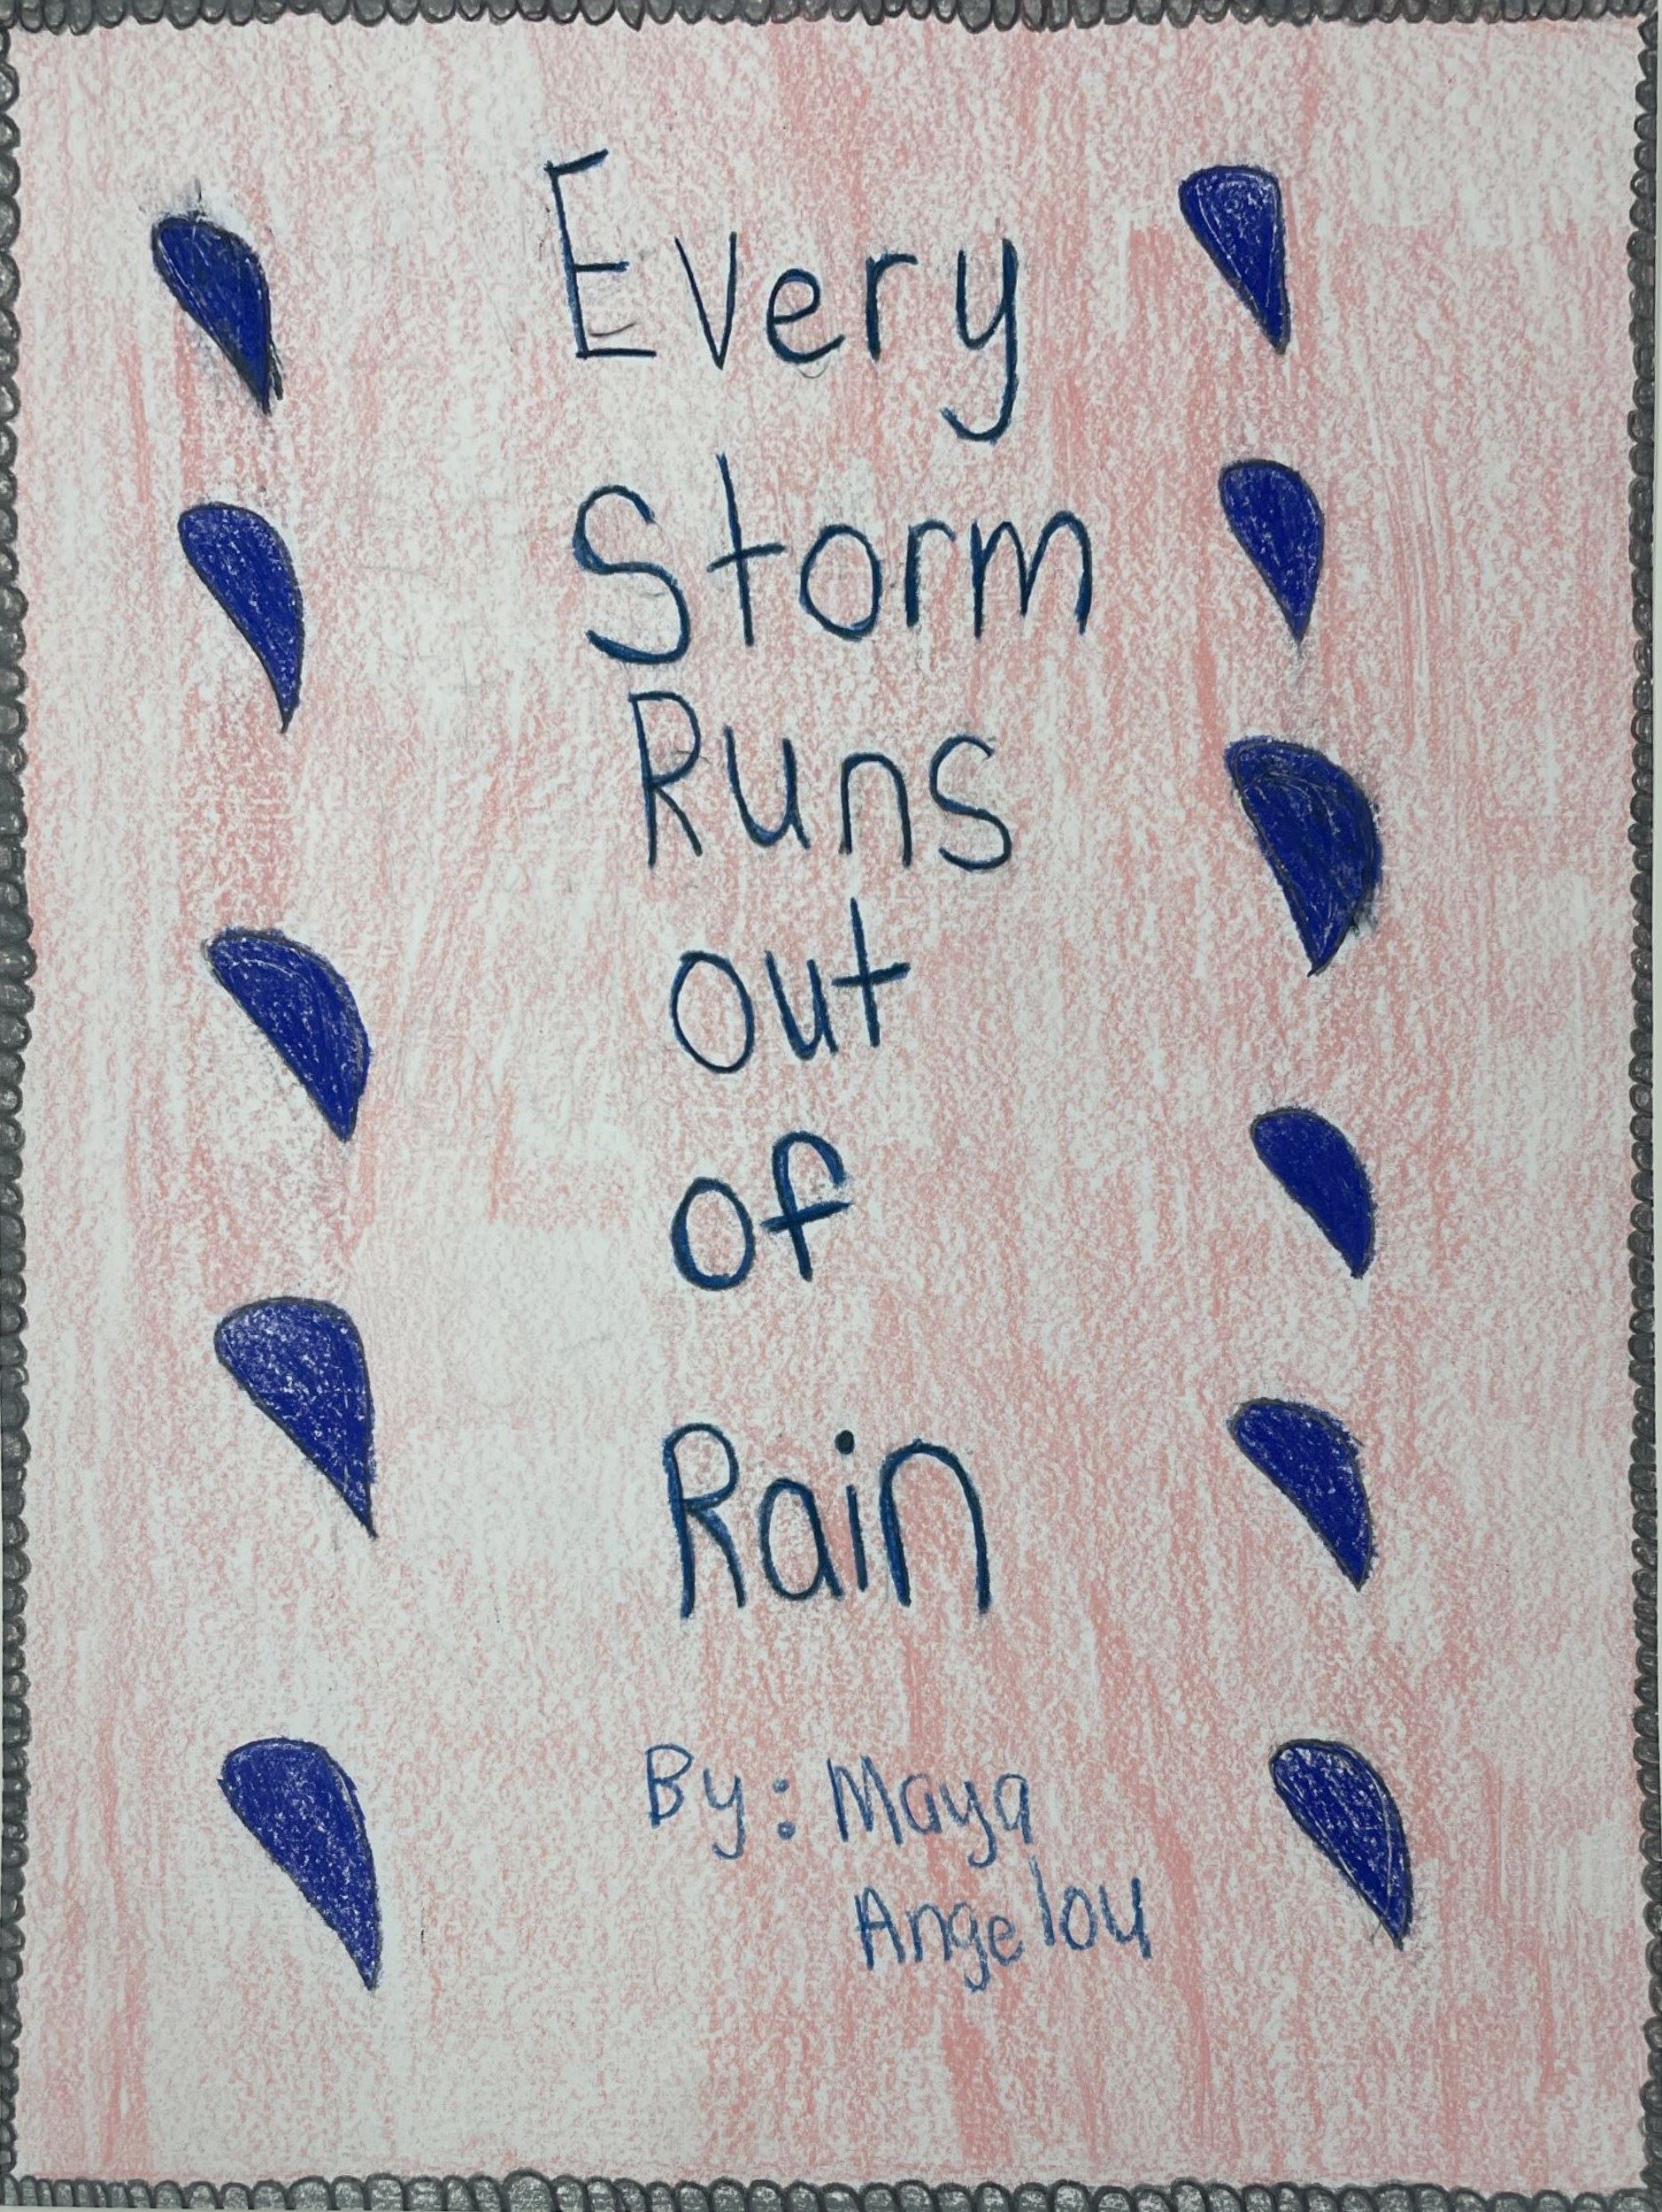 Every
Storm
Runs
out
of
Rain
By: Maya
Angelou